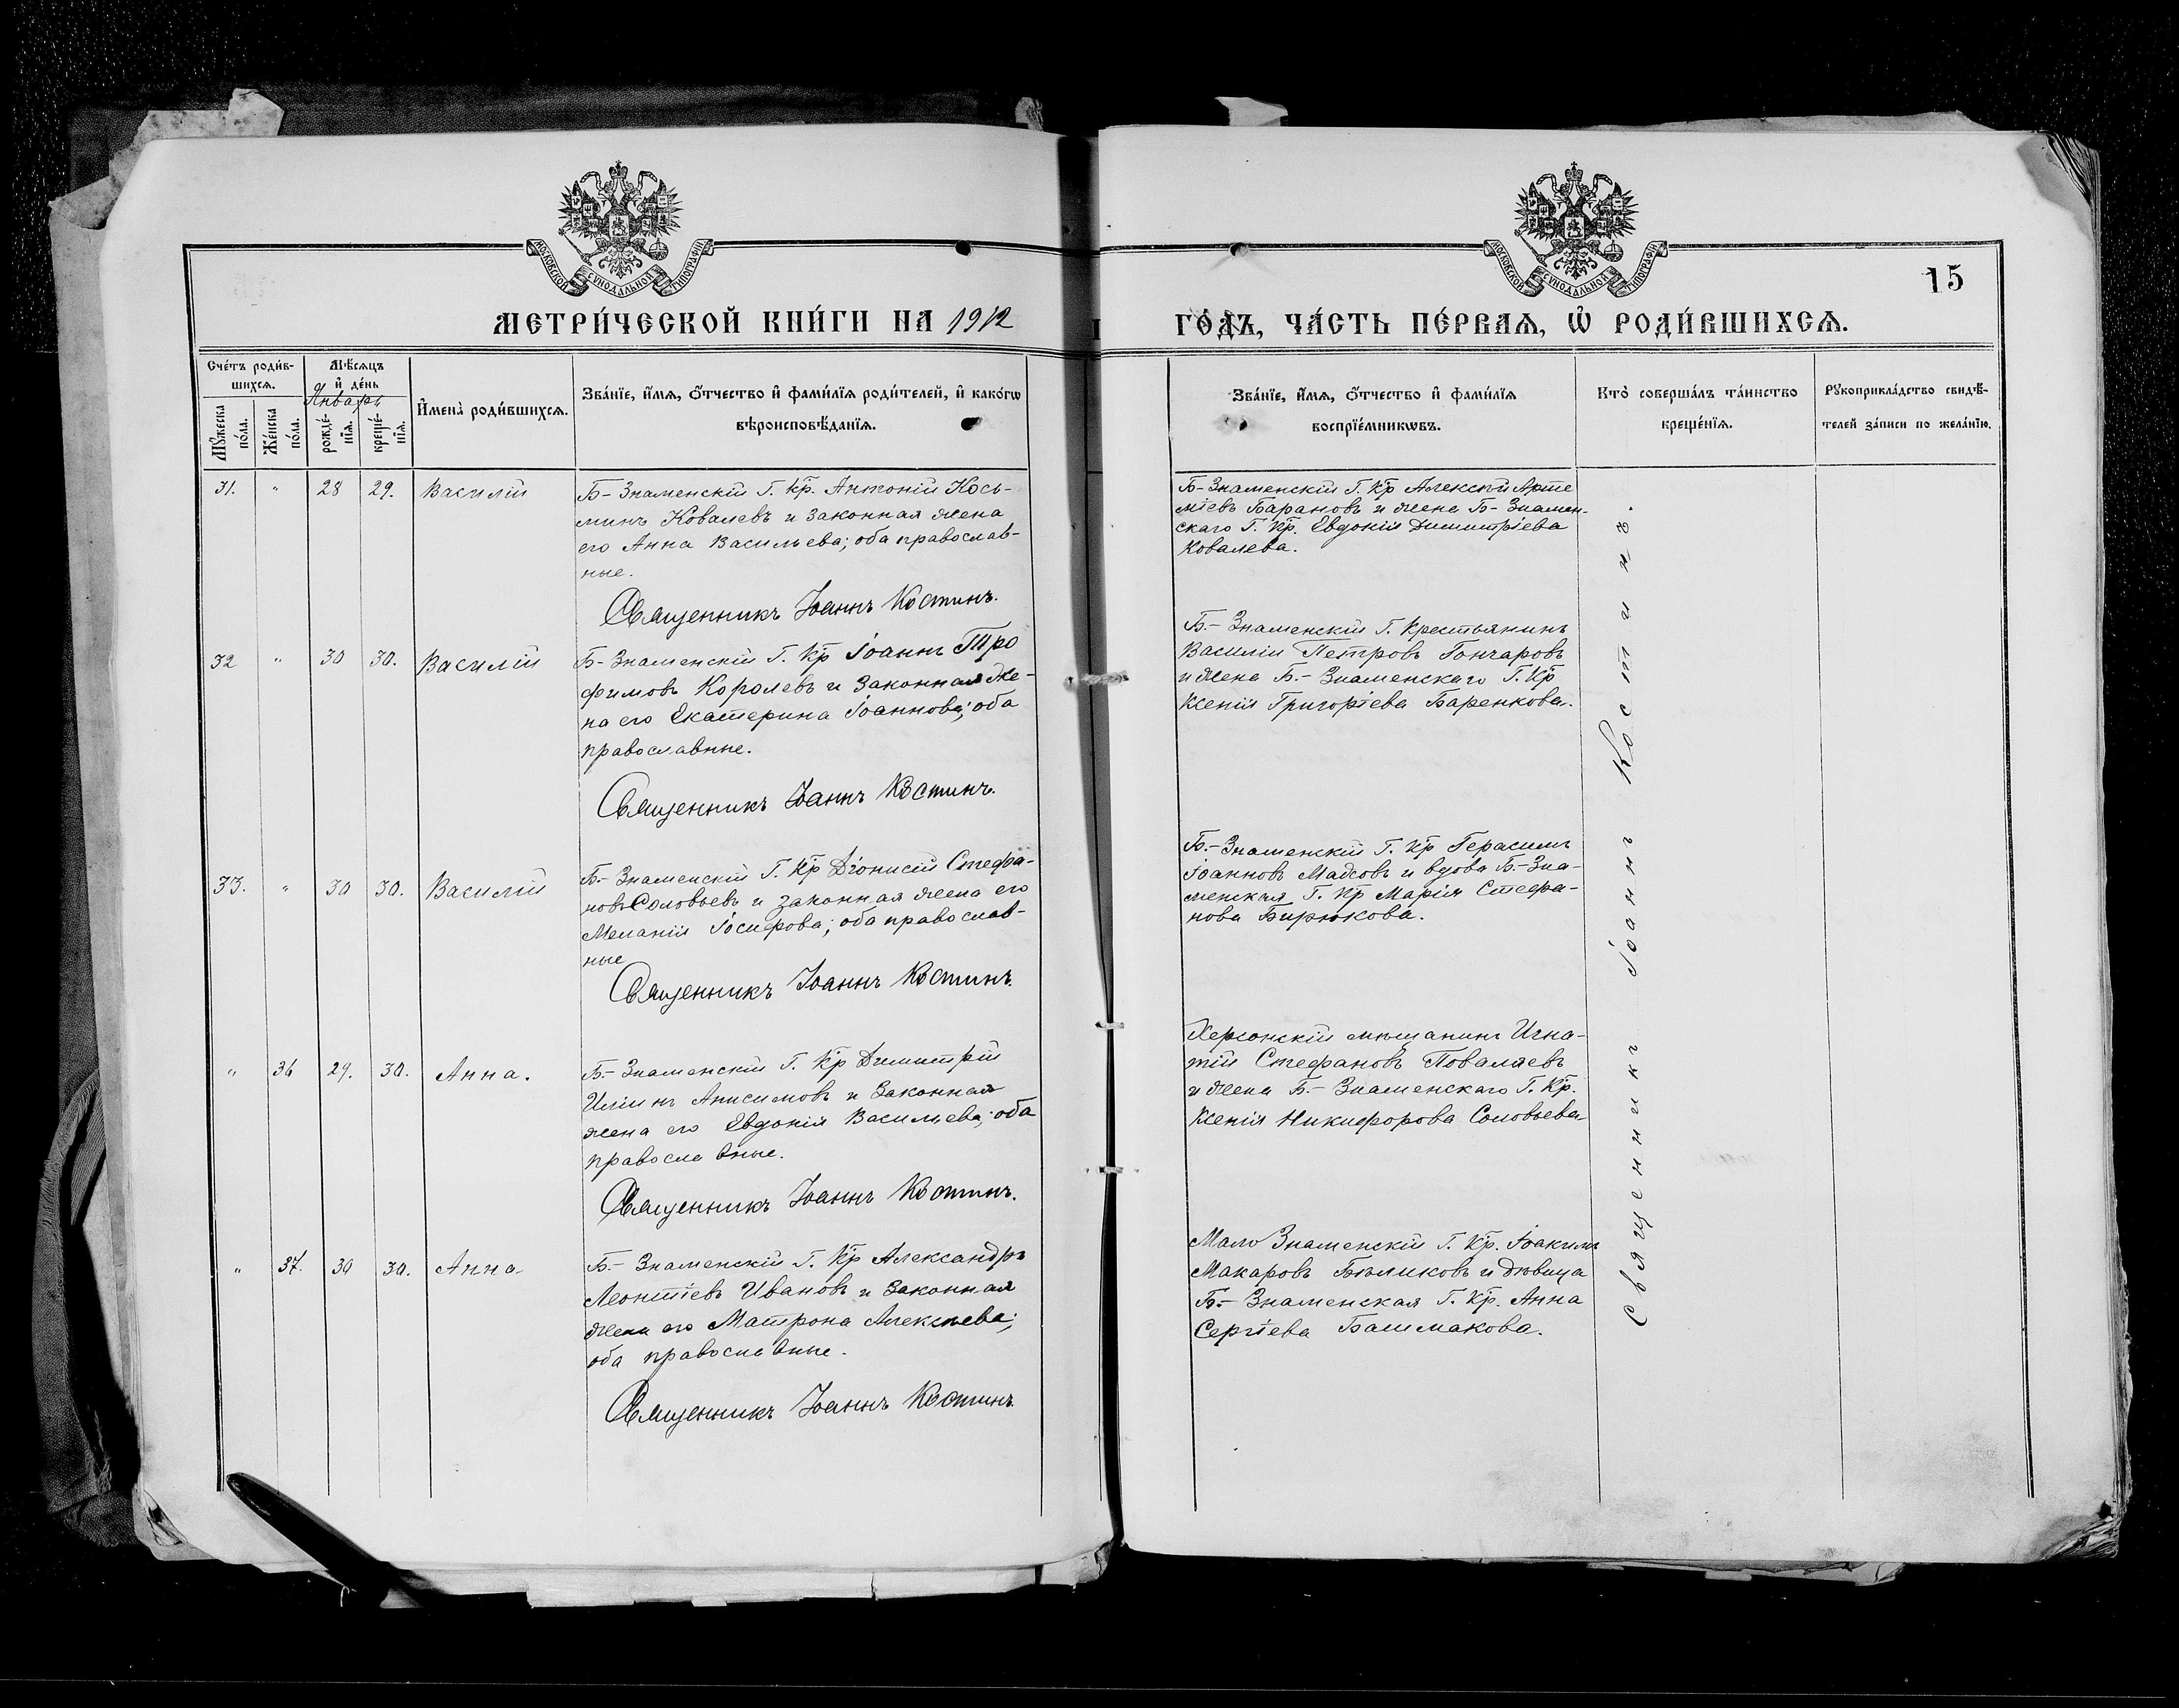 МОСКОВСКОЙ СѴНОДАЛЬНОЙ ТИПОГРАФІИ
МОСКОВСКОЙ СѴНОДАЛЬНОЙ ТИПОГРАФІИ
15
МЕТРИ́ЧЕСКОЙ КНИ́ГИ НА 1912
ГО́ДЪ, ЧА́СТЬ ПЕ́РВАѦ, Ѽ РОДИ́ВШИХСѦ.
Сче́тъ роди́в-
шихсѧ.
Мѣ́сѧцъ
и҆ де́нь
Январь
Мꙋ́жеска
по́ла.
Же́нска
по́ла.
рожде́-
нїѧ.
креще́-
нїѧ.
И҆мена̀ роди́вшихсѧ.
Зва́нїе, и҆́мѧ, ѻ҆́тчество и҆ фами́лїѧ роди́телей, и҆ како́гѡ
вѣроисповѣ́данїѧ.
Зва́нїе, и҆́мѧ, ѻ҆́тчество и҆ фами́лїѧ
воспрїе́мникѡвъ.
Кто̀ соверша́лъ та́инство
креще́нїѧ.
Рꙋкоприкла́дство свидѣ́-
телей за́писи по жела́нїю.
31. " 28 29. Василій
Б-Знаменскій Г. Кр. Антоній Кось-
минъ Ковалевъ и законная жена
его Анна Васильева; оба православ-
ные.
Священникъ Іоаннъ Костинъ.
Б-Знаменскій Г. Кр Алексѣй Арте
міевъ Барановъ и жена Б-Знамен-
скаго Г. Кр. Евдокія Димитріева
Ковалева.
32 " 30 30. Василій
Б-Знаменскій Г. Кр Іоаннъ Тро
фимовъ Королевъ и законная же-
на его Екатерина Іоаннова; оба
православные.
Священникъ Іоаннъ Костинъ.
Б.-Знаменскій Г. Крестьянинъ
Василій Петровъ Гончаровъ
и жена Б.-Знаменскаго Г. Кр
Ксенія Григоріева Баренкова.
33. " 30 30. Василій
Б.-Знаменскій Г. Кр Діонисій Стефа-
новъ Соловьевъ и законная жена его
Меланія Іосифова; оба православ-
ные
Священникъ Іоаннъ Костинъ.
Б.-Знаменскій Г. Кр Герасимъ
Іоанновъ Мадсовъ и вдова Б.-Зна-
менская Г. Кр Марія Стефа-
нова Бирюкова.
" 36 29. 30. Анна.
Б.-Знаменскій Г. Кр Димитрій
Иліинъ Анисимовъ и законная
жена его Евдокія Васильева; оба
православные.
Священникъ Іоаннъ Костинъ.
Херсонскій мѣщанинъ Игна-
тій Стефановъ Поваляевъ
и жена Б.-Знаменскаго Г. Кр.
Ксенія Никифорова Соловьева
" 37. 30 30. Анна.
Б.-Знаменскій Г. Кр Александръ
Леонтіевъ Ивановъ и законная
жена его Матрона Алексѣева;
оба православные.
Священникъ Іоаннъ Костинъ
Мало Знаменскій Г. Кр. Іоакимъ
Макаровъ Бѣликовъ и дѣвица
Б.-Знаменская Г. Кр. Анна
Сергіева Башмакова.
Священникъ Іоаннъ Костинъ.